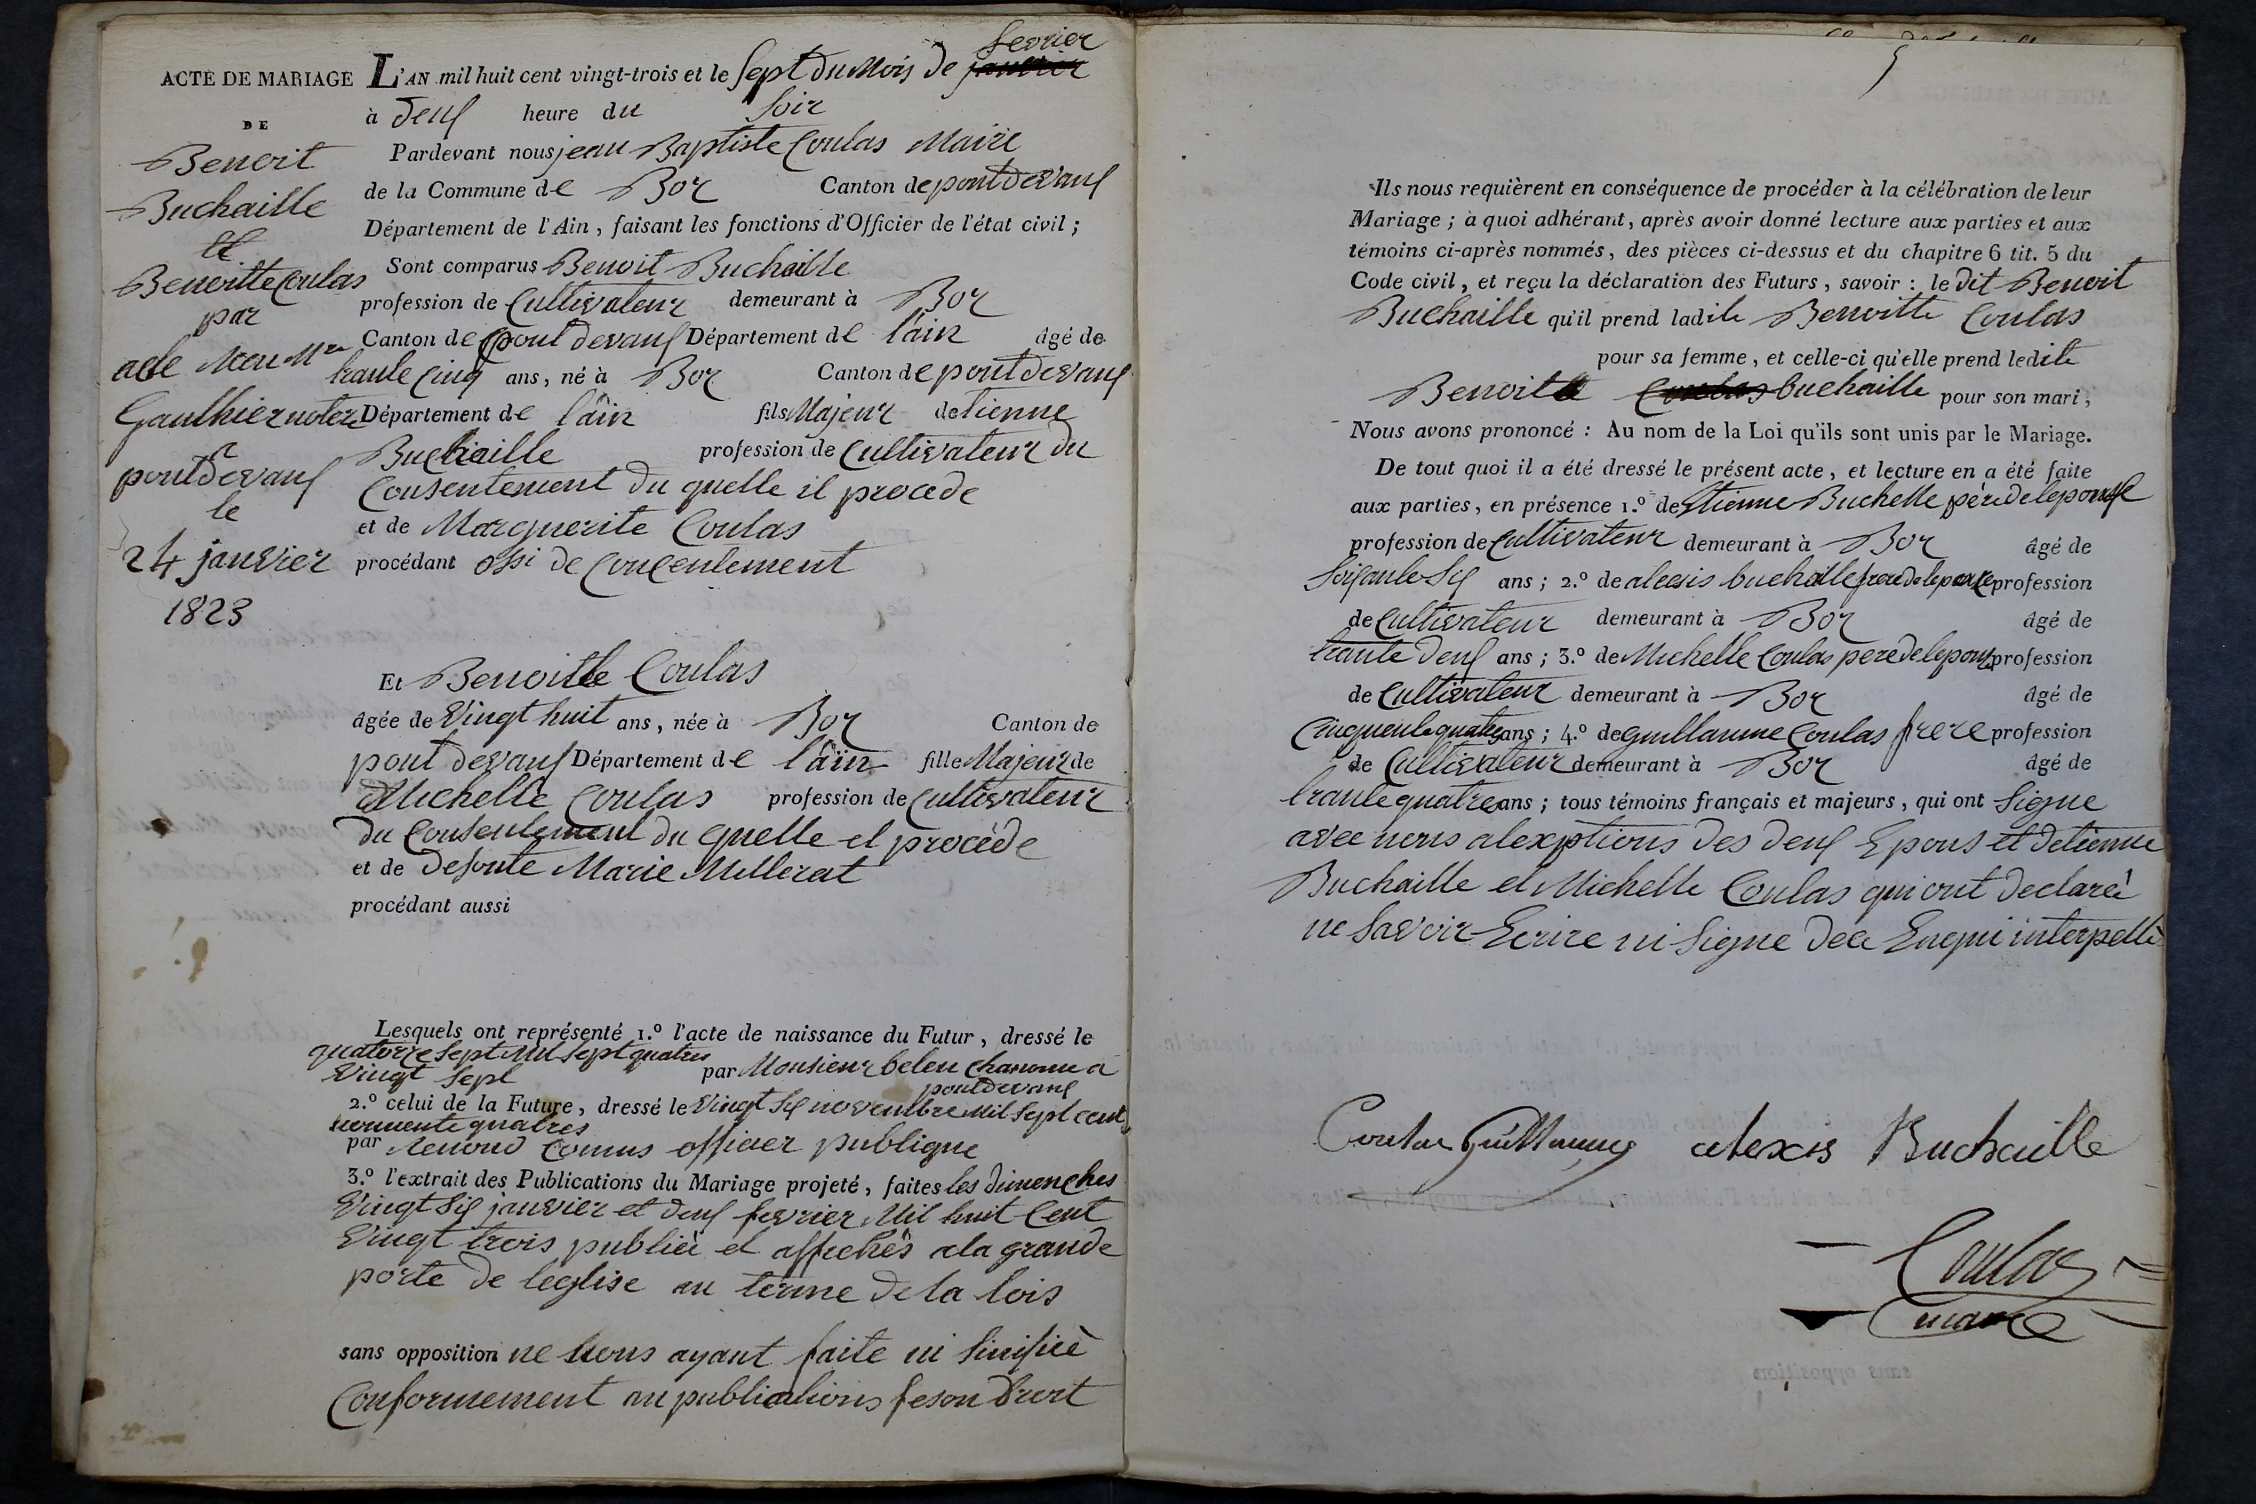 ACTE DE MARIAGE
DE
Benoit
Buchaille
et
Benoitte Coulas
par
acte recu Mre
Gaulhier notere
a
pontdevaux
le
24 janvier
1823
fevrier
L'AN mil huit cent vingt-trois et le sept du Mois de janvier
à deux heure du soir
Pardevant nous jean Baptiste Coulas Maire
de la Commune de Boz Canton de pontdevaux
Département de l'Ain, faisant les fonctions d'Officier de l'état civil;
Sont comparus Benoit Buchaille
profession de Cultivateur demeurant à Boz
Canton de pont devaux Département de l'ain âgé de
trante Cinq ans, né à Boz Canton de pontdevaux
Département de l'ain fils Majeur detienne
Buchaille profession de Cultivateur du
Consentement du quelle il procede
et de Marguerite Coulas
procédant ossi de Concentement
Et Benoitte Coulas
âgée de Vingt huit ans, née à Boz Canton de
pont devaux Département de l'ain fille Majeur de
Michelle Coulas profession de Cultivateur
du Consentement du quelle el procède
et de defonte Marie Millerat
procédant aussi
Lesquels ont représenté 1.º l'acte de naissance du Futur, dressé le
quatorze sept mil sept quatres
Vingt sept par Monsieur belen chanonne a
pontdevaux
2.º celui de la Future, dressé le Vingt six novembre mil sept cent
nonnente quatres
par Renoud Comus officier publique
3.º l'extrait des Publications du Mariage projeté, faites les dimenches
Vingt six janvier et deux fevrier Mil huit Cent
Vingt trois publiéé et affichés ala grande
porte de leglise au terme de la lois
sans opposition ne nous ayant faite ni sinifiéé
Conformement au publications feson Droit
5
Ils nous requièrent en conséquence de procéder à la célébration de leur
Mariage; à quoi adhérant, après avoir donné lecture aux parties et aux
témoins ci-après nommés, des pièces ci-dessus et du chapitre 6 tit. 5 du
Code civil, et reçu la déclaration des Futurs, savoir: le dit Benoit
Buchaille qu'il prend ladite Benoitte Coulas
pour sa femme, et celle-ci qu'elle prend ledite
Benoit Coulas buchaille pour son mari;
Nous avons prononcé: Au nom de la Loi qu'ils sont unis par le Mariage.
De tout quoi il a été dressé le présent acte, et lecture en a été faite
aux parties, en présence 1.º de Etienne Buchelle père de lepouse
profession de Cultivateur demeurant à Boz âgé de
Soixante Six ans; 2.º de alexis buchaille frere de lepouse profession
de Cultivateur demeurant à Boz âgé de
trante deux ans; 3.º de Michelle Coulas pere de lepouse profession
de Cultivateur demeurant à Boz âgé de
Cinquente quatre ans; 4.º de guillaume Coulas frere profession
de Cultivateur demeurant à Boz âgé de
trante quatres ans; tous témoins français et majeurs, qui ont signe
avec nous alexptions des deux Epous et detienne
Buchaille et Michelle Coulas qui ont declareé
ne savoir Ecrire ni signe dece Enqui interpellé
Coulas guillaume alexis Buchaille
Coulas
maire